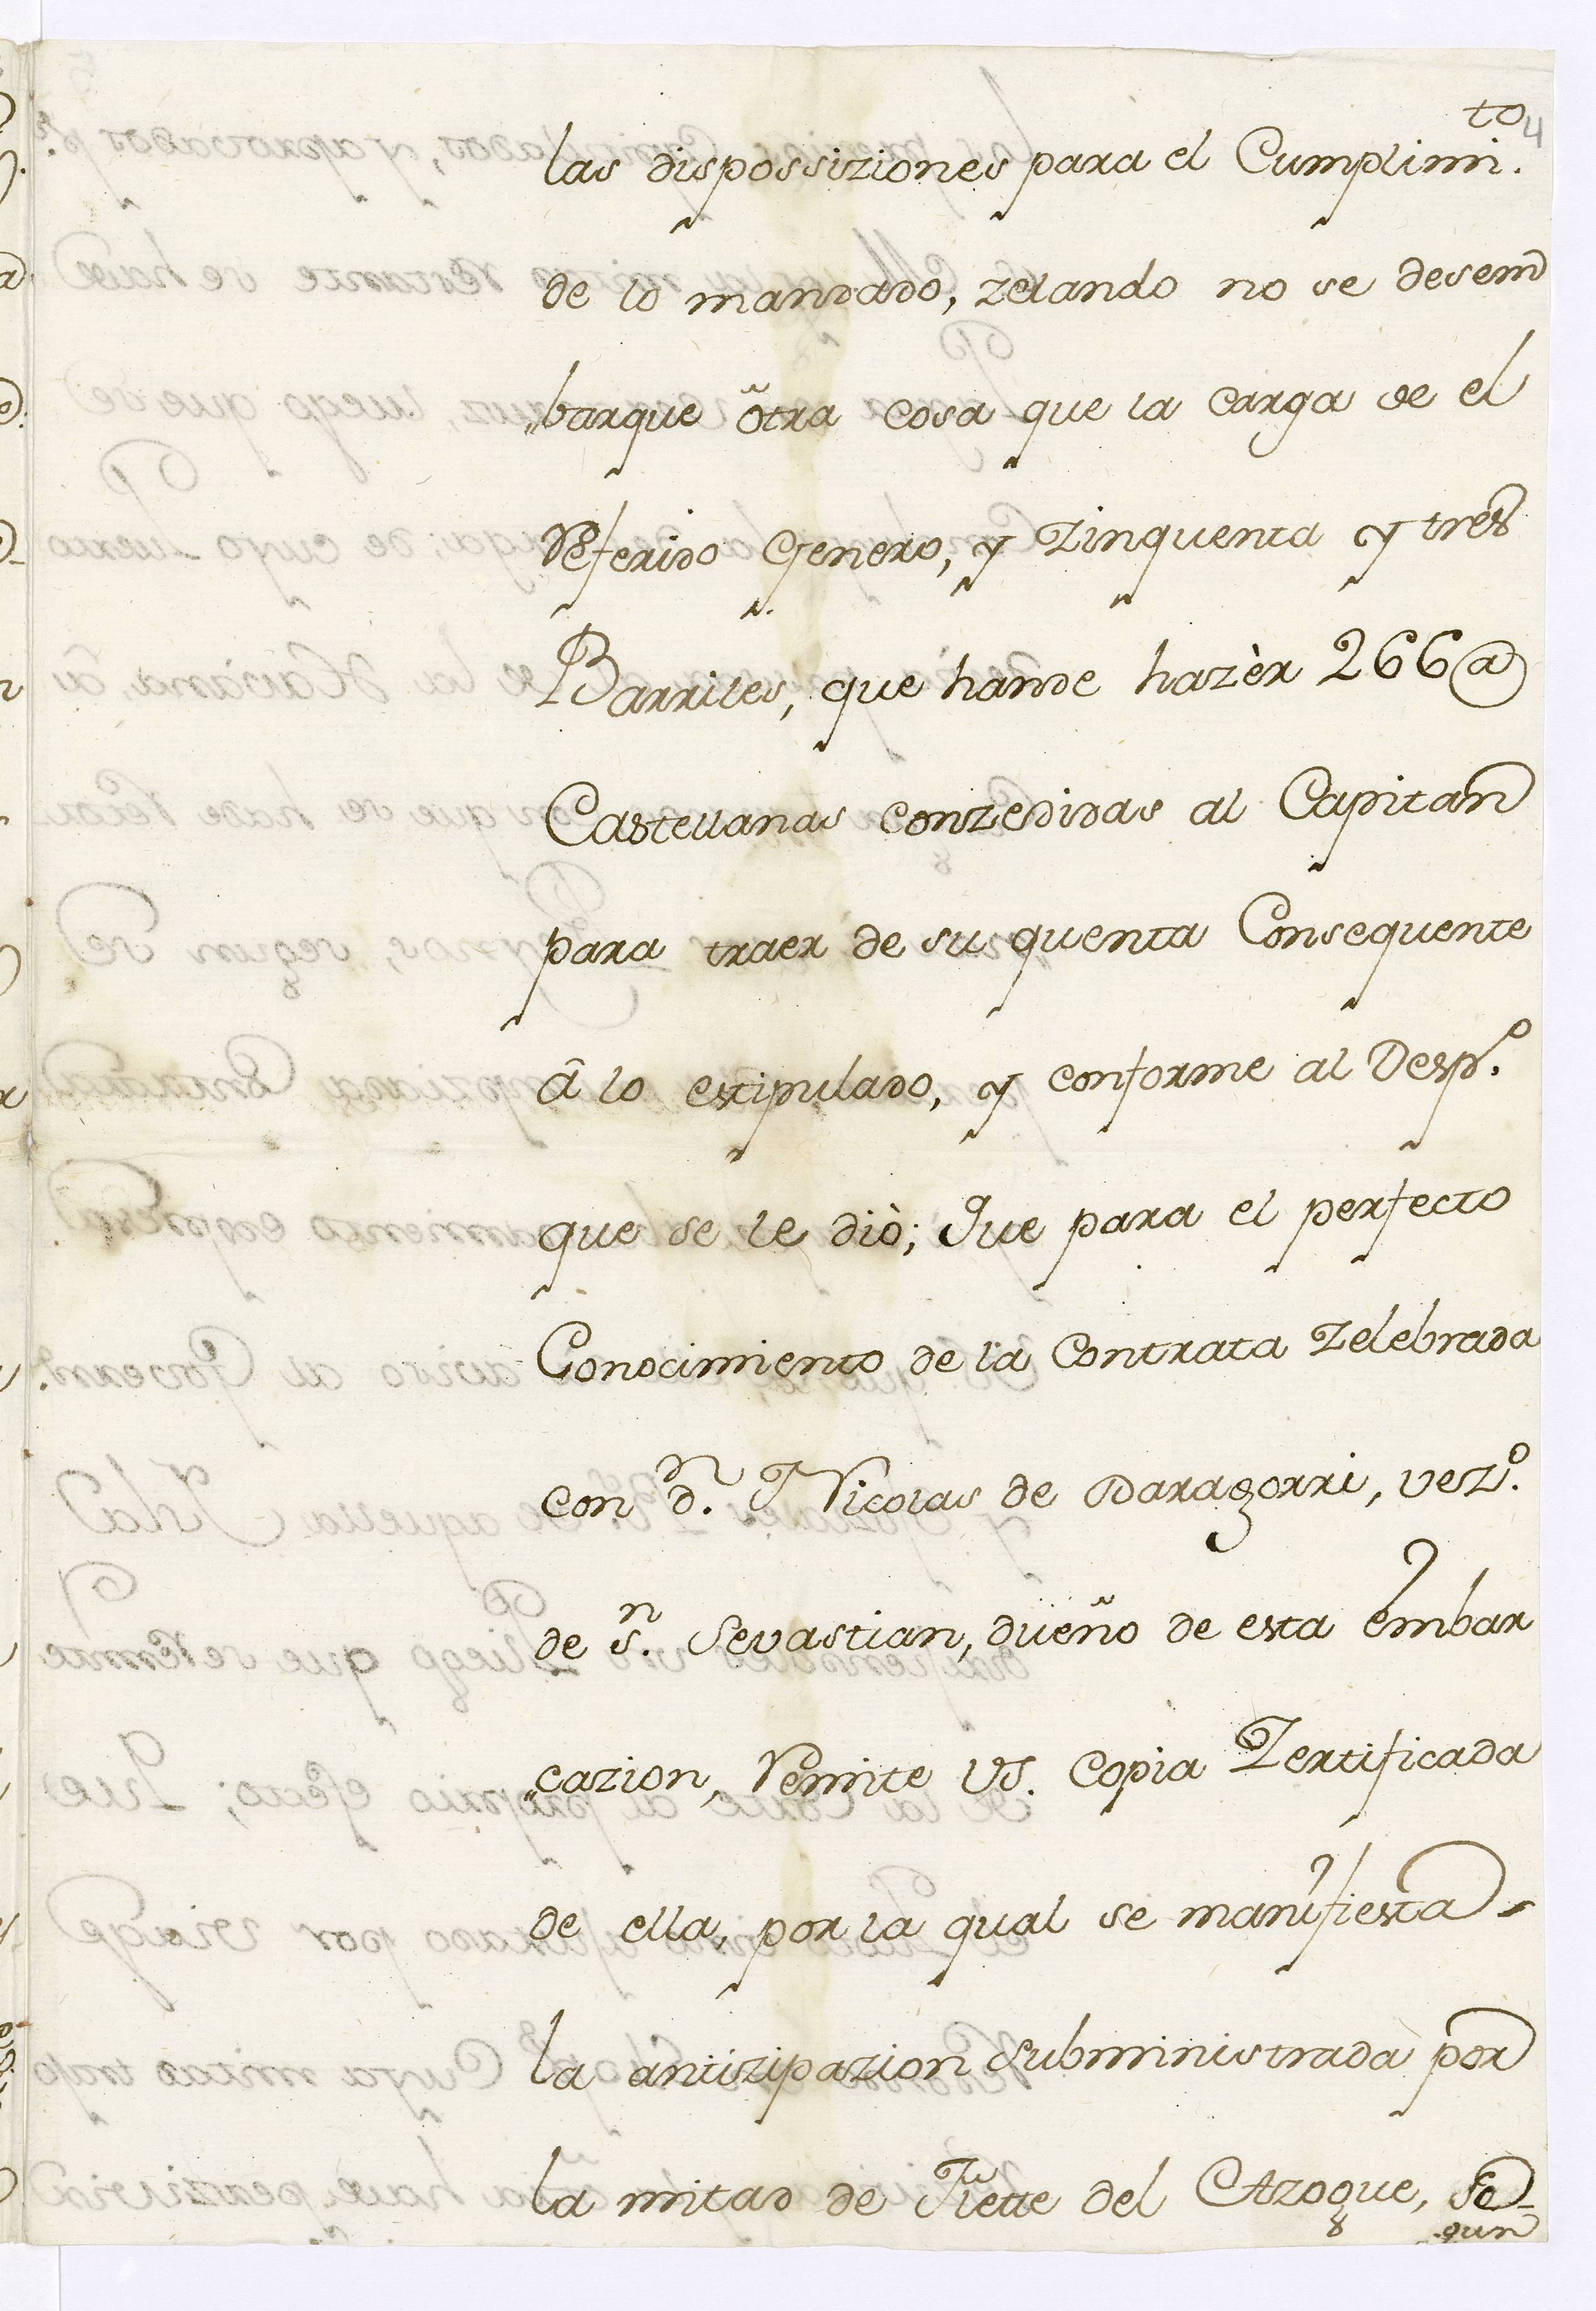 4
las dispossiziones para el Cumplimi.to
de lo mandado, zelando no se desem
"barque ôtra cosa que la carga de el
Referido Genero, y Zinquenta y tres
Barriles, que hande hazèr 266@
Castellanas conzedidas al Capitan
para traer de su quenta Consequente
â lo estipulado, y conforme al Desp.o
que se le diò; Que para el perfecto
Conocimiento de la Contrata Zelebrada
con d.n Nicolas de Daragorri, vez.o
de s.n Sevastian, dueño de esta embar
"cazion, Remite VS. Copia Zertificada
de ella, por la qual se manifiesta
la antizipazion subministrada por
la mitad de Flette del Azogue, se-
gun